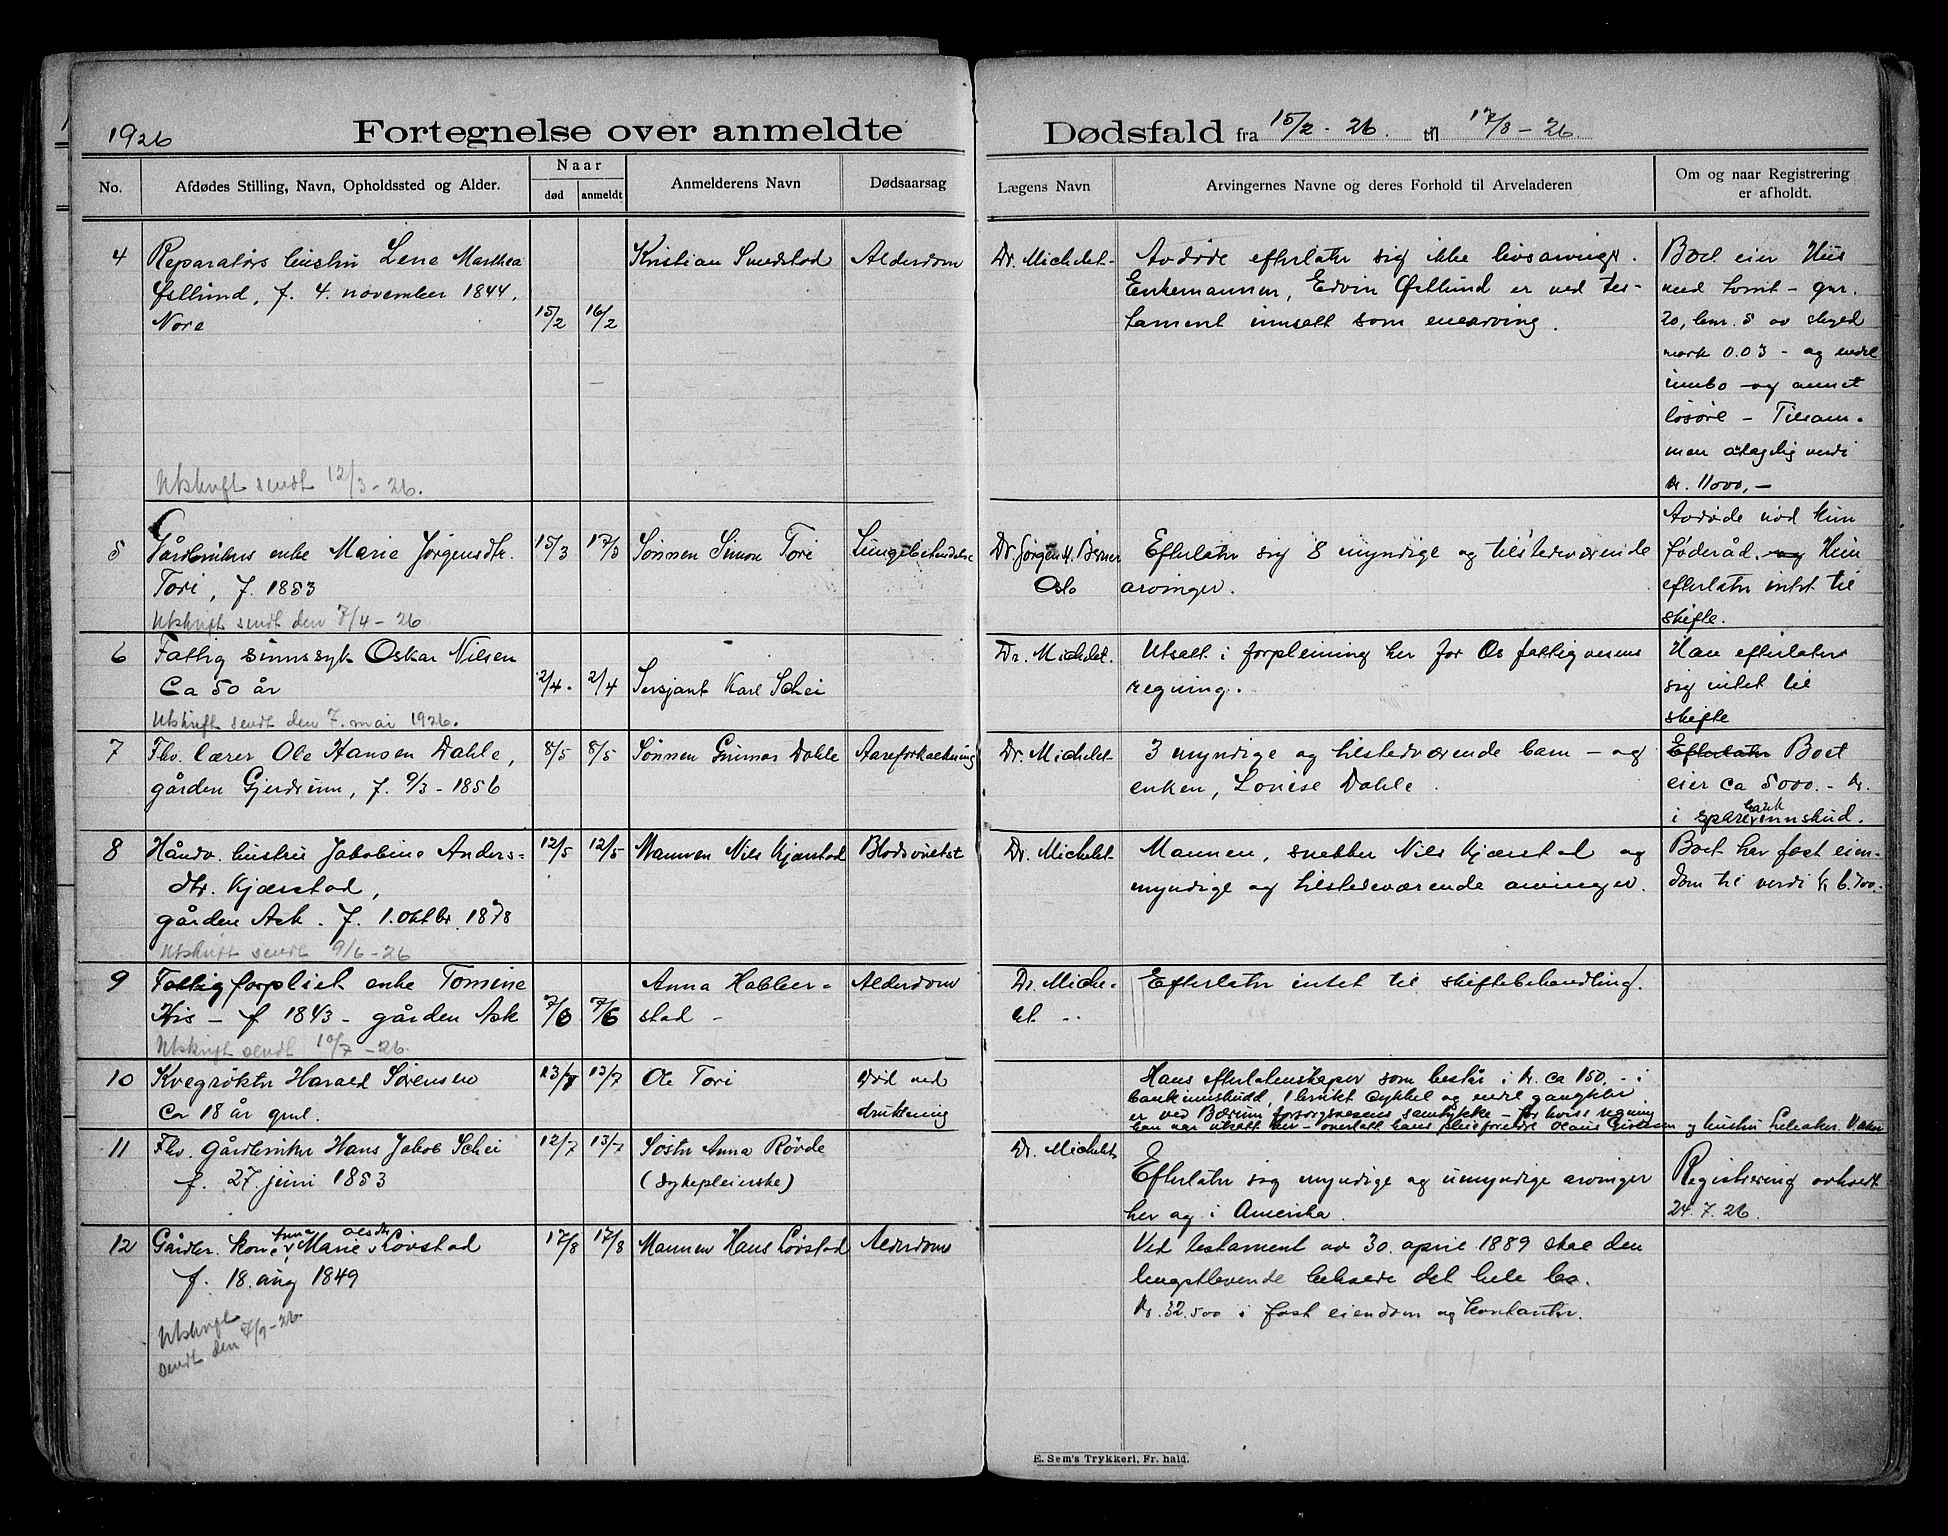 1926 Fortegnelse over anmeldte Dødsfald fra 15/2 - 26. til 17/8 - 26.
No.
Afdødes Stilling, Navn, Opholdssted og Alder.
Naar
død
anmeldt
Anmelderens Navn
Dødsaarsag
Lægens Navn
Arvingernes Navne og deres Forhold til Arveladeren
Om og naar Registrering
er afholdt.
4
Reparatørs hustru Lene Marthea
Østlund, f. 4. november 1844,
Nore
15/2
16/2
Kristian Smedstad
Alderdom
Dr. Michelet
Avdøde efterlater sig ikke livsarvinger.
Enkemannen, Edvin Østlund er ved tes-
tament innsatt som enearving.
Boet eier Hus
med tomt - gnr.
20, bnr. 5 av skyld
mark 0.03 - og endel
innbo og annet
løsøre - Tilsam-
men antagelig verdi
kr. 11000,-
Utskrift sendt 12/3 - 26.
5
Gårdbrukers enke Marie Jørgensdtr.
Tori, f. 1853
15/3
17/3
Sønnen Simon Tori
Lungebetendelse
Dr Jørgen H. Berner
Oslo
Efterlater sig 8 myndige og tilstedeværende
arvinger.
Avdøde nød kun
føderåd. og Hun
efterlater intet til
skifte.
Utskrift sendt den 7/4 - 26
6
Fattig sinnssyk Oskar Nilsen
Ca 50 år
2/4.
2/4
Sersjant Karl Schei
Dr. Michelet.
Utsatt i forpleining her for Os fattigvesens
regning.
Han efterlater
sig intet til
skifte
Utskrift sendt den 7. mai 1926.
7
Fhv. lærer Ole Hansen Dahle,
gården Gjerdrum, f. 9/3 - 1856
8/5
8/5
Sønnen Gunnar Dahle
Aareforkalkning
Dr. Michelet
3 myndige og tilstedeværende barn - og
enken, Lovise Dahle.
Efterlater Boet
eier ca 5000.- kr.
i sparebankinnskud.
8
Håndv. hustru Jakobine Anders-
dtr. Kjærstad,
gården Ask. f. 1. oktbr. 1878
12/5
12/5
Mannen Nils Kjærstad
Blodsvulst
Dr. Michelet
Mannen, snekker Nils Kjærstad og
myndige og tilstedeværende arvinger.
Boet har fast eien-
dom til verdi kr 6.700,-
Utskrift sendt 9/6 - 26
9
Fattigforpleiet enke Tomine
Kis - f 1843 - gården Ask
7/6
7/6
Anna Habber-
stad -
Alderdom
Dr. Miche-
let. --
Efterlater intet til skiftebehandling.
Utskrift sendt 10/7 - 26.
10
Kvegrøkter Harald Sørensen
Ca 18 år gml.
13/7
13/7
Ole Tori
Død ved
drukning
Hans efterlatenskaper som består i kr. ca 150.- i
bankinnskudd, 1 brukt cykkel og endel gangklær
er ved Bærum forsorgsvesens samtykke - for hvis regning
han var utsatt her - overlatt hans pleieforeldre Olaus og hustru
11
Fhv. gårdbruker Hans Jakob Schei
f. 27. juni 1853
12/7
13/7
Søster Anna Røvde
(Sykepleierske)
Dr. Michelet
Efterlater sig myndige og umyndige arvinger
her og i Amerika.
Registrering avholdt
24. 7. 26.
12
Gårdbr. kone Anna Marie Olsdtr Løvstad
f. 18. aug 1849
17/8
17/8
Mannen Hans Løvstad
Alderdom
Ved testament av 30. april 1889 skal den
lengstlevende beholde det hele bo.
Kr. 32.500 i fast eiendom og kontanter.
Utskrift
sendt den 7/9 - 26.
E. Sem's Trykkeri, Fr. hald.